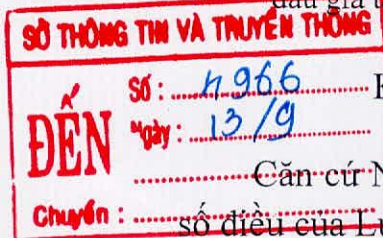 đấu giá
SỞ THÔNG TIN VÀ TRUYỀN THÔNG
ĐẾN
Số : 4966
Ngày : 13/9
Căn cứ N
Chuyển :
số điều của Lu